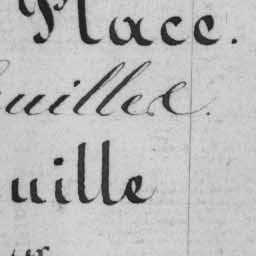 Place.
uilles.
uille